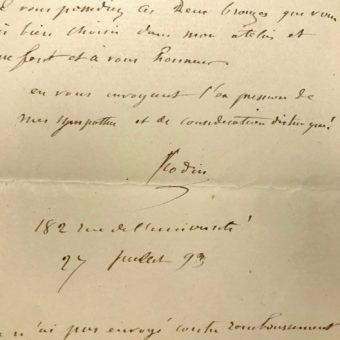 vous possédiez ces deux bronzes que vous
bien choisis dans mon atelier et
me font et à vous honneur
en vous envoyant l'expression de
mes sympathies et de considération distingué
Rodin
182 rue de l'université
27 Juillet 93
n'ai pas envoyé contre remboursement